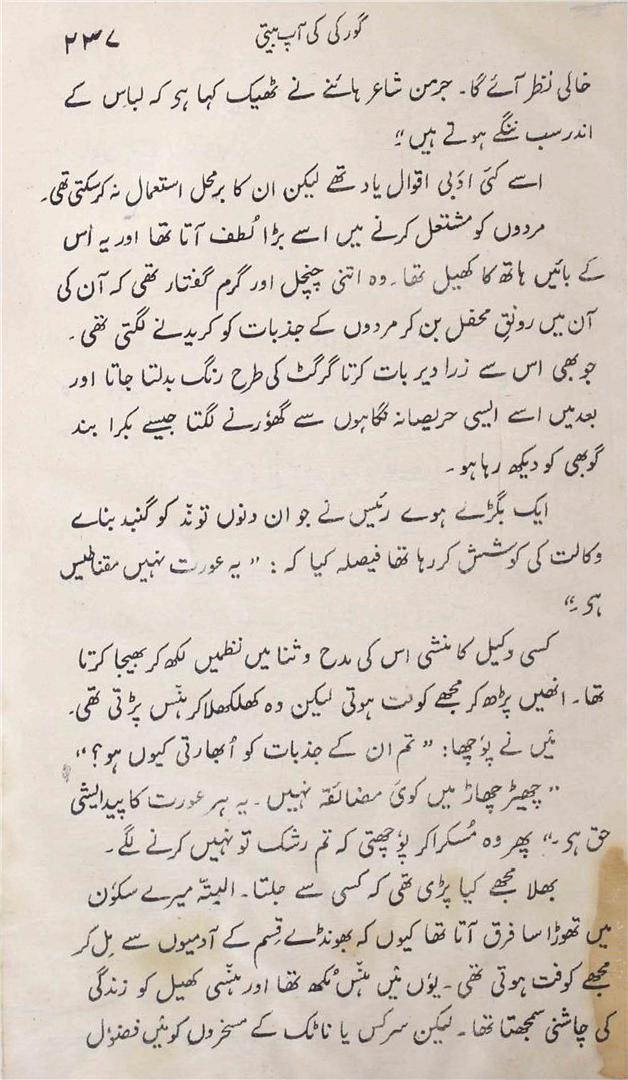 گورکی کی آپ بیتی
۲۳۷
خالی نظر آئے گا۔ جرمن شاعر ہائنے نے ٹھیک کہا ہی کہ لباس کے
اندر سب ننگے ہوتے ہیں"
اسے کئی ادبی اقوال یاد تھے لیکن ان کا برمحل استعمال نہ کرسکتی تھی۔
مردوں کو مشتعل کرنے میں اسے بڑا لُطف آتا تھا اور یہ اُس
کے بائیں ہاتھ کا کھیل تھا۔ وہ اتنی چنچل اور گرم گفتار تھی کہ آن کی
آن میں رونقِ محفل بن کر مردوں کے جذبات کو کریدنے لگتی تھی۔
جو بھی اس سے زرا دیر بات کرتا گرگٹ کی طرح رنگ بدلتا جاتا اور
بعد میں اسے ایسی حریصانہ نگاہوں سے گھوٗرنے لگتا جیسے بکرا بند
گوبھی کو دیکھ رہا ہو۔
ایک بگڑے ہوے رئیس نے جو ان دنوں توند کو گنبد بناے
وکالت کی کوشش کر رہا تھا فیصلہ کیا کہ : "یہ عورت نہیں مقناطیس
ہی۔"
کسی وکیل کا منشی اس کی مدح و ثنا میں نظمیں لکھ کر بھیجا کرتا
تھا۔ انھیں پڑھ کر مجھے کوفت ہوتی لیکن وہ کھلکھلا کر ہنس پڑتی تھی۔
مَیں نے پوٗچھا: "تم ان کے جذبات کو اُبھارتی کیوں ہو؟"
"چھیڑ چھاڑ میں کوئی مضائقہ نہیں۔ یہ ہر عورت کا پیدایشی
حق ہی۔" پھر وہ مُسکرا کر پوٗچھتی کہ تم رشک تو نہیں کرنے لگے۔
بھلا مجھے کیا پڑی تھی کہ کسی سے جلتا۔ البتہّ میرے سکوٗن
میں تھوڑا سا فرق آتا تھا کیوں کہ بھونڈے قِسم کے آدمیوں سے مِل کر
مجھے کوفت ہوتی تھی۔ یوٗں مَیں ہنس مُکھ تھا اور ہنسی کھیل کو زندگی
کی چاشنی سمجھتا تھا۔ لیکن سرکس یا ناٹک کے مسخروں کو مَیں فضوٗل